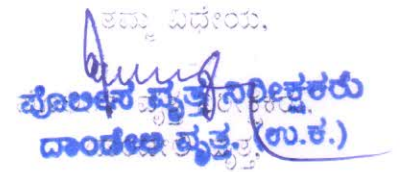 ತಮ್ಮ ವಿಧೇಯ,
ಪೊಲೀಸ ವೃತ್ತ ನಿರೀಕ್ಷಕರು
ದಾಂಡೇಲಿ ವೃತ್ತ. (ಉ.ಕ.)